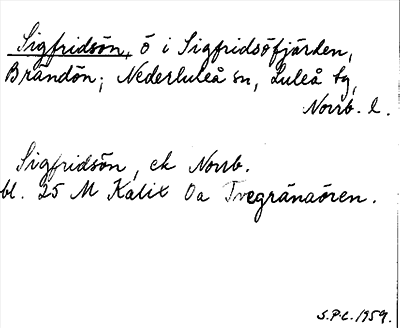 Sigfridsön, ö i Sigfridsöfjärden,
Brändön; Nederluleå sn, Luleå tg,
Norrb. l.
Sigfridsön, ek Norrb.
bl. 25 M Kalix Oa Tvegränaören.
S.P.L. 1959.